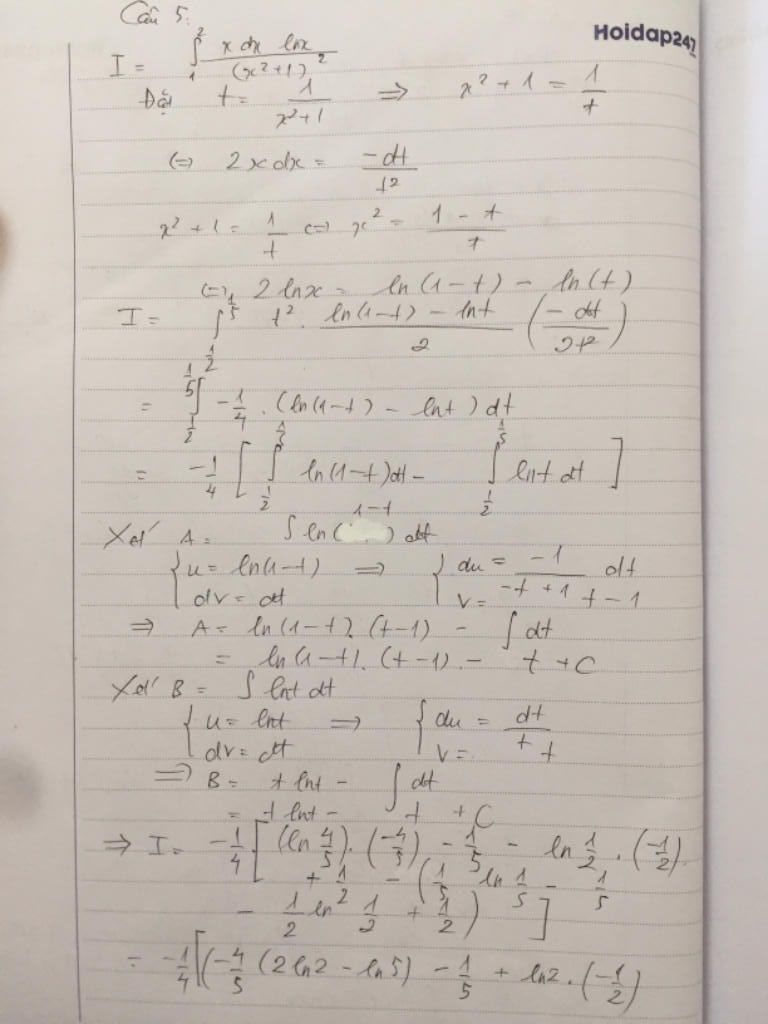 Câu 5:
Hoidap247
I = ∫₁² x dx lnx / (x²+1)²
Đặt t = 1/(x²+1) ⇒ x²+1 = 1/t
(=) 2xdx = -dt/t²
x²+1 = 1/t (=) x² = (1-t)/t
(=) 2lnx = ln(1-t) - ln(t)
I = ∫_{1/2}^{1/5} t². (ln(1-t) - lnt)/2 (-dt/2t²)
= ∫_{1/2}^{1/5} -1/4 . (ln(1-t) - lnt) dt
= -1/4 [ ∫_{1/2}^{1/5} ln(1-t)dt - ∫_{1/2}^{1/5} lnt dt ]
Xét A = ∫ ln(1-t) dt
{ u = ln(1-t) ⇒ { du = -1/(-t+1) dt
dv = dt v = t-1
⇒ A = ln(1-t). (t-1) - ∫ dt
= ln(1-t). (t-1) - t + C
Xét B = ∫ lnt dt
{ u = lnt ⇒ { du = dt/t
dv = dt v = t
⇒ B = t lnt - ∫ dt
= t lnt - t + C
⇒ I = -1/4 [ (ln 4/5). (-4/5) - 1/5 - ln 1/2 . (-1/2)
+ 1/2 - (1/5 ln 1/5 - 1/5
- 1/2 ln 1/2 + 1/2) ]
= -1/4 [(-4/5 (2ln2 - ln5) - 1/5 + ln2 . (-1/2)